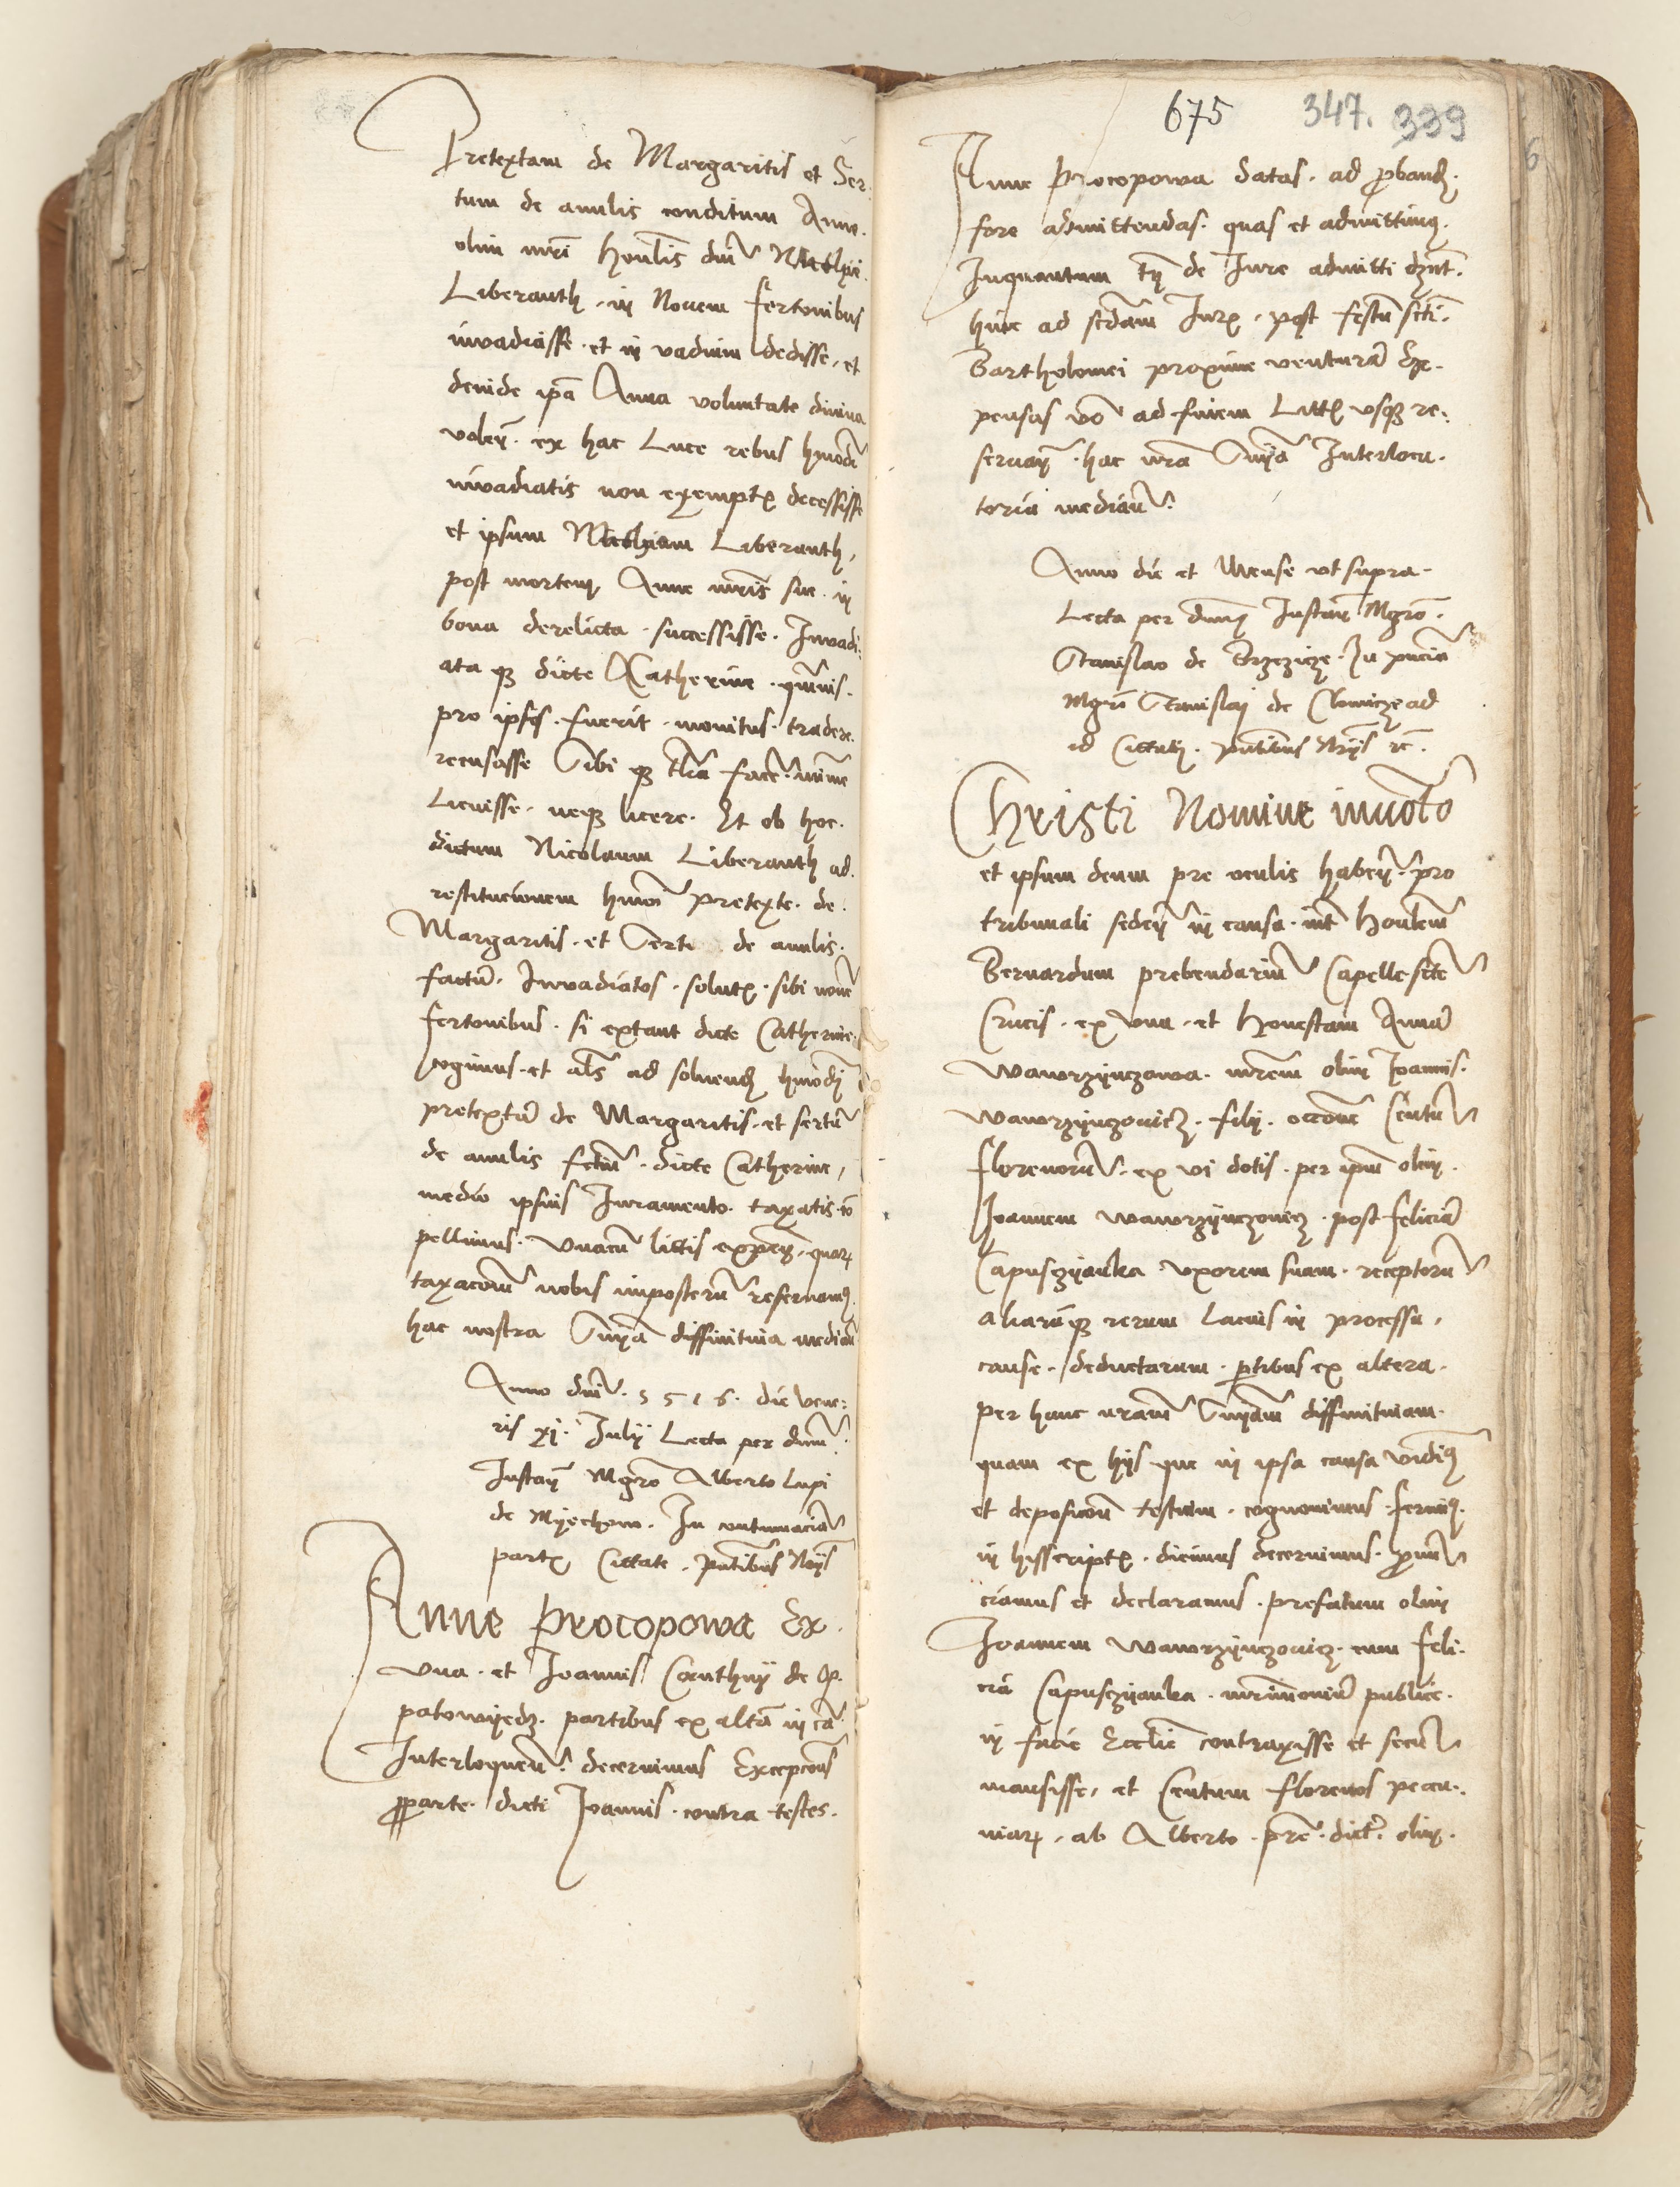 Pretextam de Margaritis et Ser.
tum de anulis conditum Anna.
olim mr̃i Honlis dnĩ Nicolai
Liberanth. in Nouem fertonibus
invadiasse. et in vadium dedisse, et
deinde ip̃a Anna voluntate divina
volen̄. ex hac Luce rebus hmõdi
invadiatis non exemptꝭ decessisse
et ipsum Nicolaum Liberanth,
post mortem Anne mr̃is sue. in
bona derelicta. successisse. Invadi:
ata qꝫ dicte Catherine. qmvis.
pro ipsis. fuerit. monitus. tradere.
recusasse Sibi qꝫ facẽ. minime
Licuisse. neqꝫ licere. Et ob hoc.
dictum Nicolaum Liberanth ad.
restitucionem hmõi Pretexte. de.
Margaritis. et Serti de anulis.
factũ. Invadiatos. solutꝭ. sibi novẽ
fertonibus. si extant dicte Catherine.
cogimus. et als̃ ad soluend̃ hmõdi
pretextũ de Margaritis. et sertũ
de anulis fctũm. dicte Catherine,
medio ipsius Iuramento. taxatis. cõ
pellimus. Vnacũ littis expen̄. quaꝝ
taxacõem nobis imposterũ reservamꝰ
hac nostra Snĩa diffinitiva median̄
Anno dnĩ. 1516. die vene:
ris xj. Julij Lecta per dnũm.
Instan̄ Mgr̃o Alberto Lupi
de Myechow. In contumaciã
partꝭ Cittate. pñtibus Nr̃ijs
Anne Procopowa Ex.
vna. et Joannis Conthny de Op.
patowyecz. partibus ex altã in cã
Interloquen̄. decernimus Excepcõns
ꝓ parte. dicti Joannis. contra testes.
675 347. 339
Anne Procopowa datas. ad ꝓband̃.
fore admittendas. quas et admittimꝰ.
Inquantum tn̄ de Iure admitti dẽnt.
hinc ad scdam Iurꝭ. post festũ scti.
Bartholomei proxime venturã Ex.
pensas vo ad finem Littꝭ vsqꝫ re:
servan̄. hac nr̃a Snĩa Interlocu.
toria median̄.
Anno die et Mense vt supra.
Lecta per dnũm Instan̄ Mgr̃o.
Stanislao de Brzezicze. In pñcia
Mgr̃i Stanislai de Clomicze ad
id Cittati. pñtibus Nr̃ijs rc̃.
Christi Nomine inuocto
et ipsum deum pre oculis haben̄. pro
tribunali seden̄ in causa. int̃ Honlem
Bernardum prebendariũ Capelle scte
Crucis. ex vna. et Honestam Annã
Wawrzynczowa. mr̃em olim Joannis.
Wawrzynczovicz. filij. occõne Centũ
florenorũ. ex vi dotis. per ipm̃ olim.
Joannem Wawrzynczovicz. post feliciã
Capusczijanka vxorem suam. receptorũ
aliarũqꝫ rerum Lacius in processu,
cause. deductarum. ꝑtibus ex altera.
per hanc nr̃am Snĩam diffinitivam.
quam ex hijs que in ipsa causa vidimꝰ
et deposicõn testium. cognovimus. ferimꝰ.
in hisscriptꝭ. dicimus decernimus. ꝓnũ
ciamus et declaramus. prefatum olim
Joannem Wawrzynczovicz. cum feli:
cia Capusczijanka. mr̃imoniũ publice.
in facie Ecclie contraxisse et secũ
mansisse, et Centum florenos pecu.
niaꝝ, ab Alberto. prẽ. dictẽ. olim.